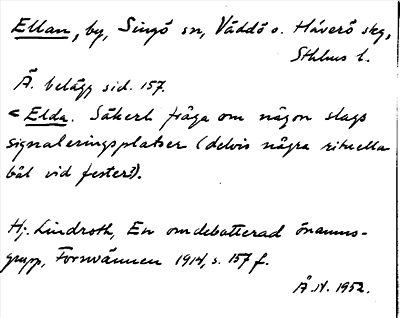 Ellan, by, Singö sn, Väddö o. Häverö skg,
Sthlms l.
Ä. belägg sid. 157.
< Elda. Säkert fråga om någon slags
signaleringsplatser (delvis några rituella
bål vid fester?).
Hj. Lindroth, En omdebatterad önamns-
grupp, Fornvännen 1914, s. 157 f.
Å.N. 1952.